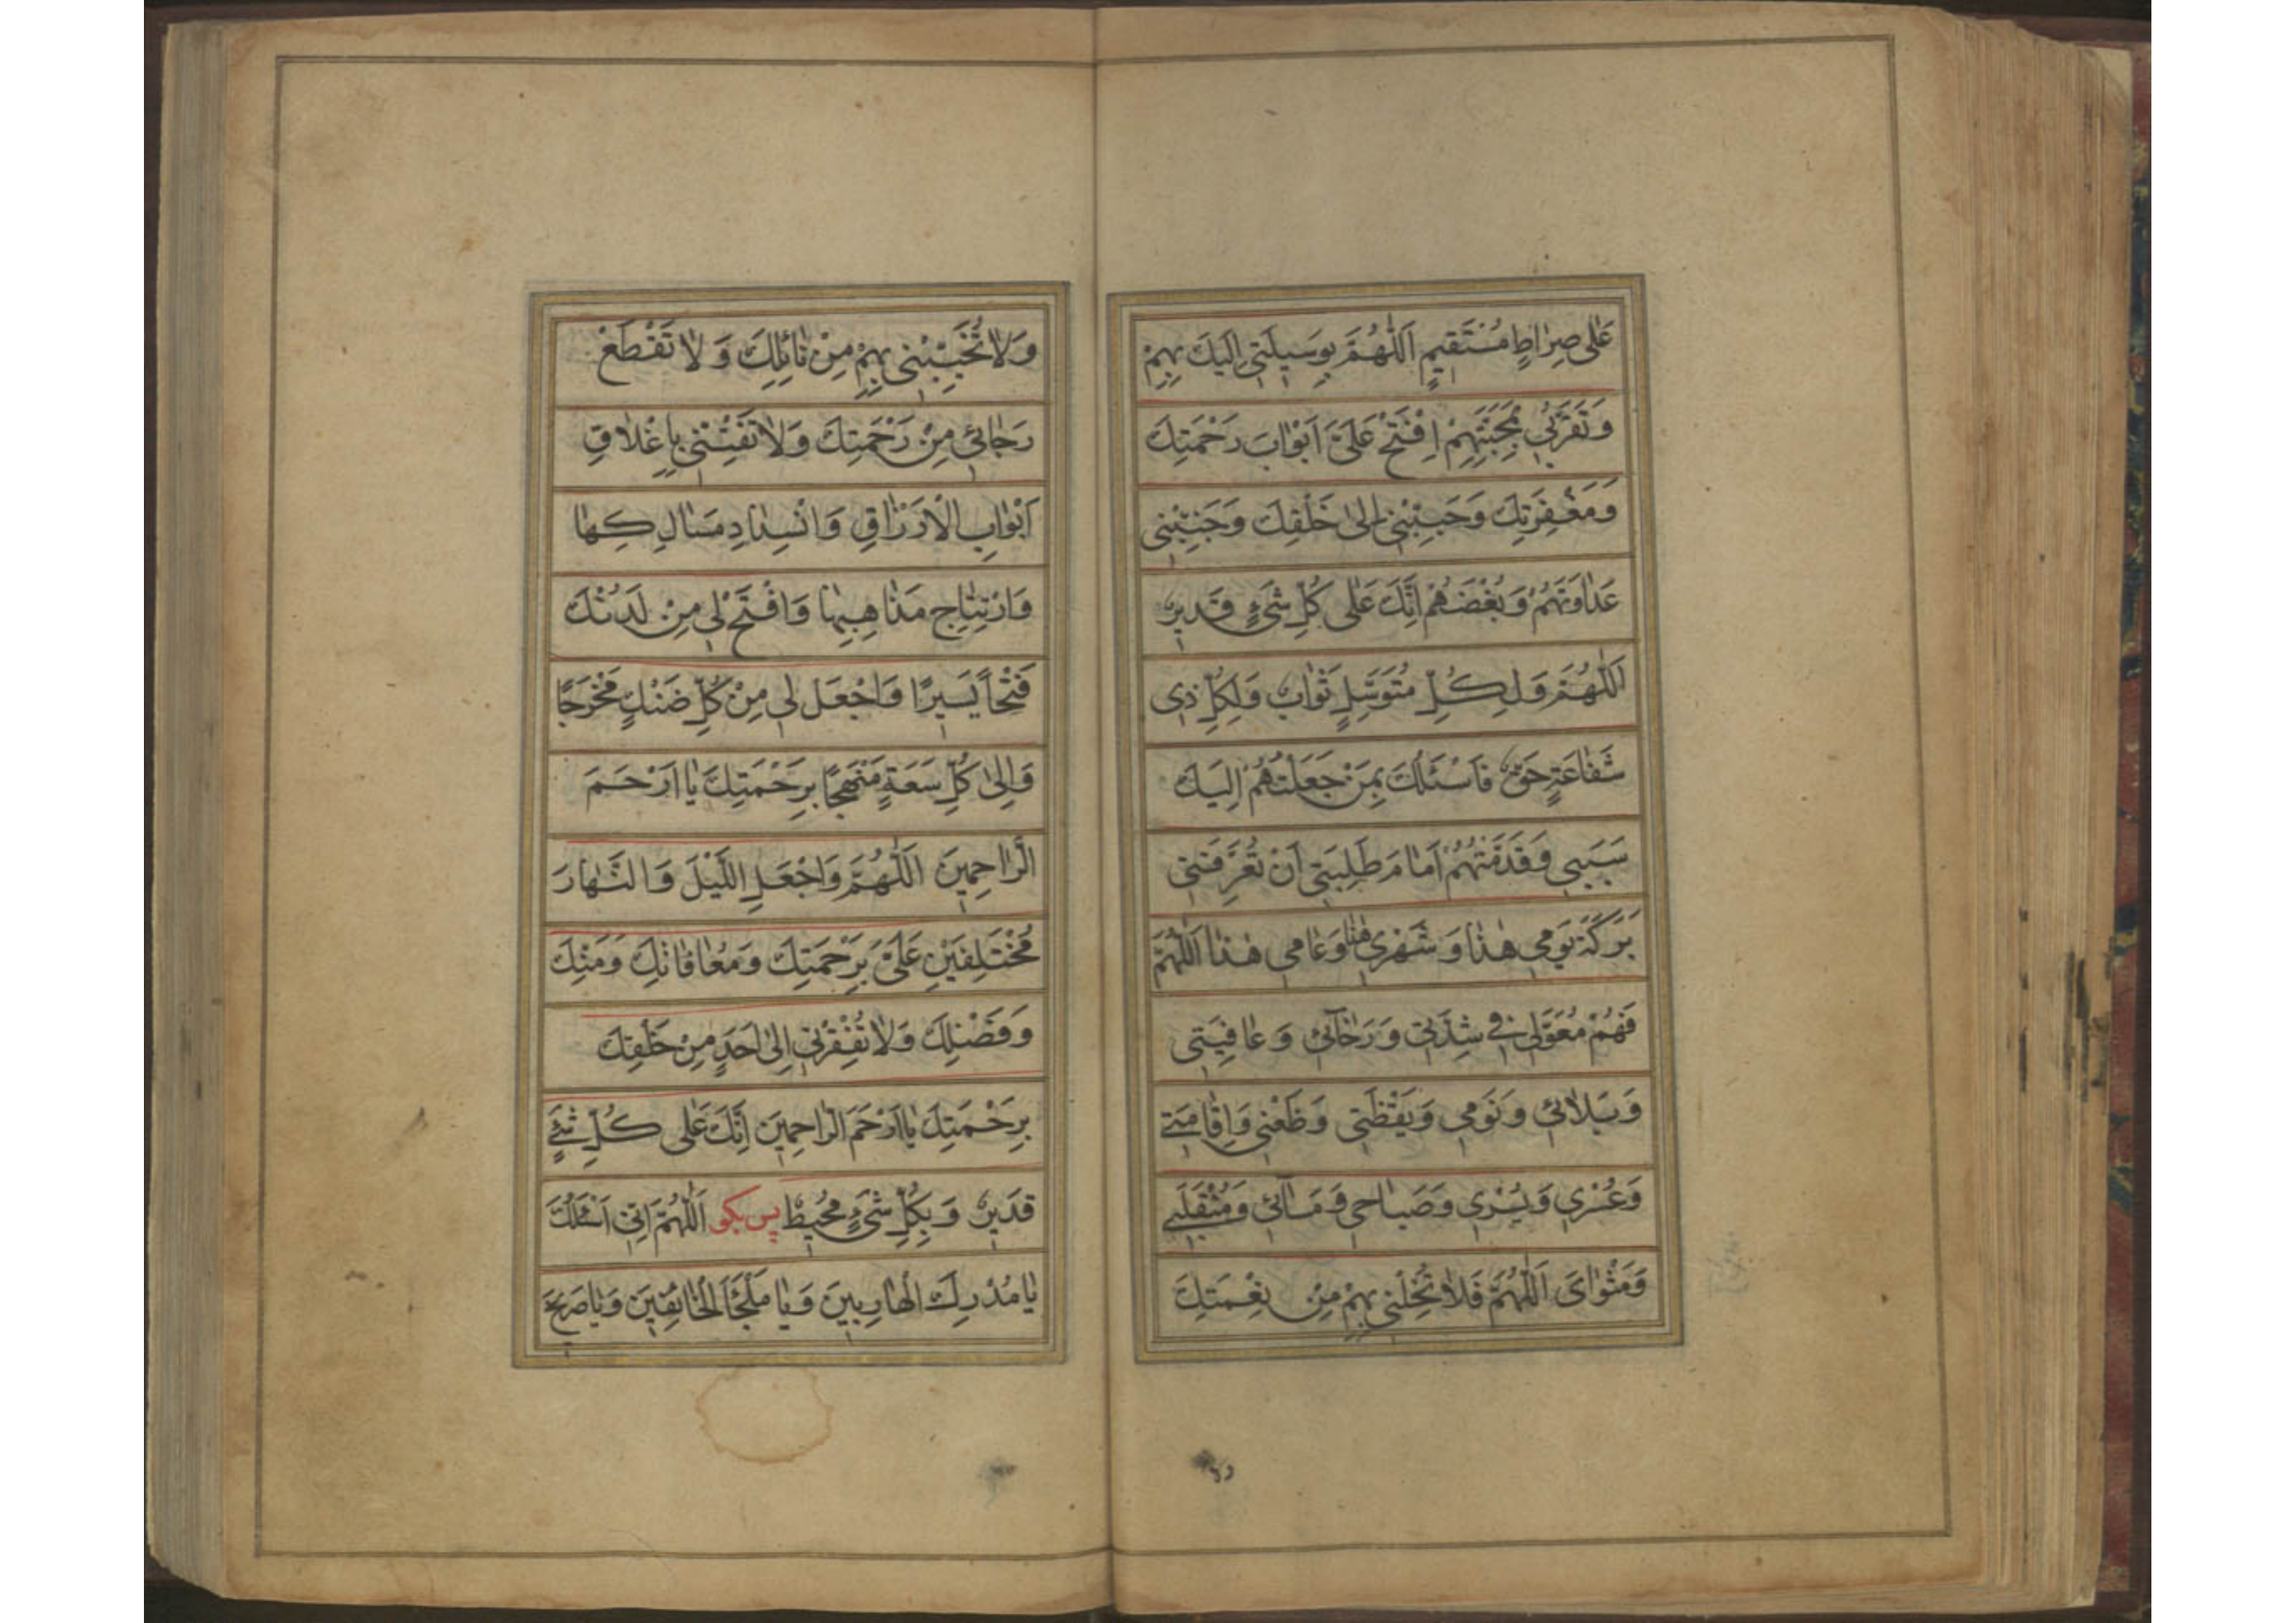 عَلٰى صِرٰاطٍ مُسْتَقيمٍ اَللّٰهُمَّ بِوَسيلَتى اِلَيكَ بِهِمْ
وَتَقَرُّبى بِمَحَبَّتِهِمْ اِفْتَحْ عَلَىَّ اَبْوٰابَ رَحْمَتِكَ
وَمَغْفِرَتِكَ وَحَبِّبْنى اِلىٰ خَلْقِكَ وَجَنِّبْنى
عَدٰاوَتَهُمْ وَبُغْضَهُمْ اِنَّكَ عَلٰى كُلِّ شَىْءٍ قَديرٌ
اَللّٰهُمَّ وَلِكُلِّ مُتَوَسِّلٍ ثَوٰابٌ وَلِكُلِّ ذى
شَفٰاعَةٍ حَقٌّ فَاَسْئَلُكَ بِمَنْ جَعَلْتَهُمْ اِلَيكَ
سَبَبى وَقَدَّمْتَهُمْ اَمٰامَ طَلِبَتى اَنْ تُعَرِّفَنى
بَرَكَةَ يَوْمى هٰذٰا وَشَهْرى هٰذٰا وَعٰامى هٰذٰا اَللّٰهُمَّ
فَهُمْ مُعَوَّلى فى شِدَّتى وَرَخٰآئى وَعٰافِيَتى
وَبَلٰائى وَنَوْمى وَيَقْظَتى وَظَعْنى وَاِقٰامَتى
وَعُسْرى وَيُسْرى وَصَبٰاحى وَمَسٰآئى وَمُنْقَلَبى
وَمَثْوٰاىَ اَللّٰهُمَّ فَلاٰ تُخْلِنى بِهِمْ مِنْ نِعْمَتِكَ
وَلاٰ تُخَيِّبْنى بِهِمْ مِنْ نٰائِلِكَ وَلاٰ تَقْطَعْ
رَجٰائى مِنْ رَحْمَتِكَ وَلاٰ تَفْتِنّى بِاِغْلاٰقِ
اَبْوٰابِ الْاَرْزٰاقِ وَانْسِدٰادِ مَسٰالِكِهٰا
وَارْتِتٰاجِ مَذٰاهِبِهٰا وَافْتَحْ لى مِنْ لَدُنْكَ
فَتْحاً يَسيرًا وَاجْعَل لى مِنْ كُلِّ ضَنْكٍ مَخْرَجًا
وَاِلىٰ كُلِّ سَعَةٍ مَنْهَجًا بِرَحْمَتِكَ يٰا اَرْحَمَ
الرّٰاحِمينَ اَللّٰهُمَّ وَاجْعَلِ اللَّيْلَ وَالنَّهٰارَ
مُخْتَلِفَيْنِ عَلَىَّ بِرَحْمَتِكَ وَمُعٰافٰاتِكَ وَمَنِّكَ
وَفَضْلِكَ وَلاٰ تُفْقِرْنى اِلىٰ اَحَدٍ مِنْ خَلْقِكَ
بِرَحْمَتِكَ يٰا اَرْحَمَ الرّٰاحِمينَ اِنَّكَ عَلٰى كُلِّ شَىْءٍ
قَديرٌ وَبِكُلِّ شَىْءٍ مُحيطٌ پس بكو اَللّٰهُمَّ اِنّى اَسْئَلُكَ
يٰا مُدْرِكَ الْهٰارِبينَ وَيٰا مَلْجَأَ الْخٰائِفينَ وَيٰا صَريخَ